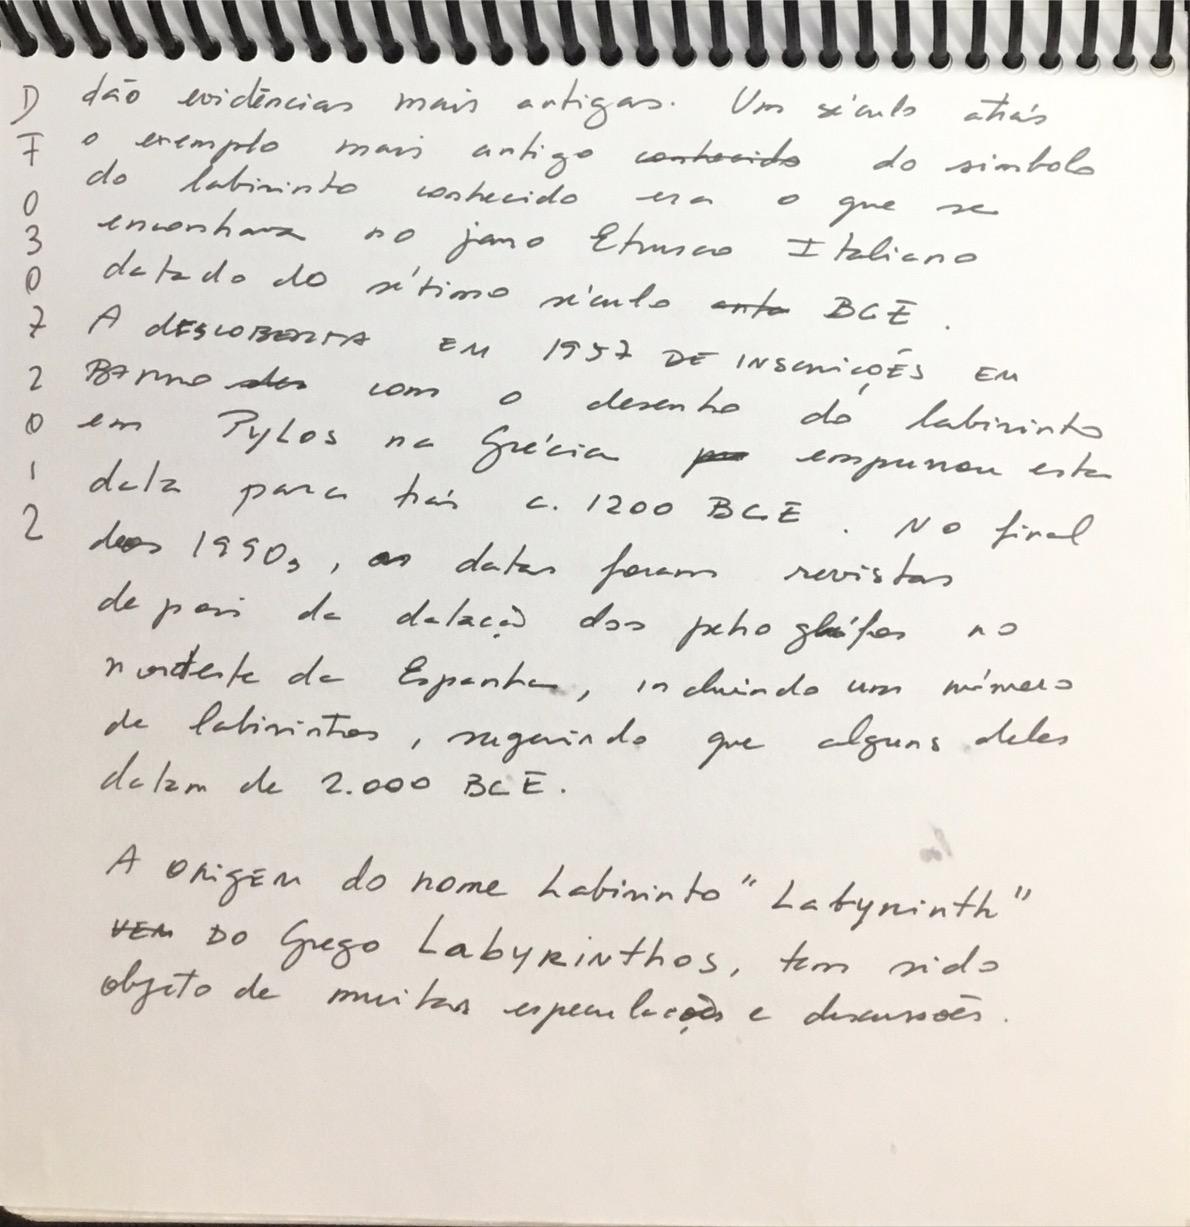 D
F
0
3
0
7
2
0
1
2
dão evidências mais antigas. Um século atrás
o exemplo mais antigo conhecido do simbolo
do labirinto conhecido era o que se
encontrava no jarro Etrusco Italiano
datado do sétimo século ante BCE.
A DESCOBERTA EM 1957 DE INSCRIÇÕES EM
BARRO com o desenho do labirinto
em Pylos na Grécia empurrou esta
data para trás c. 1200 BCE. No final
dos 1990s, as datas foram revistas
depois da datação dos petroglífos no
nordeste da Espanha, incluindo um número
de labirintos, sugerindo que alguns deles
datam de 2.000 BCE.
A ORIGEM do nome Labirinto "Labyrinth"
VEM DO Grego LabyRINTHOS, tem sido
objeto de muitas especulações e discussões.